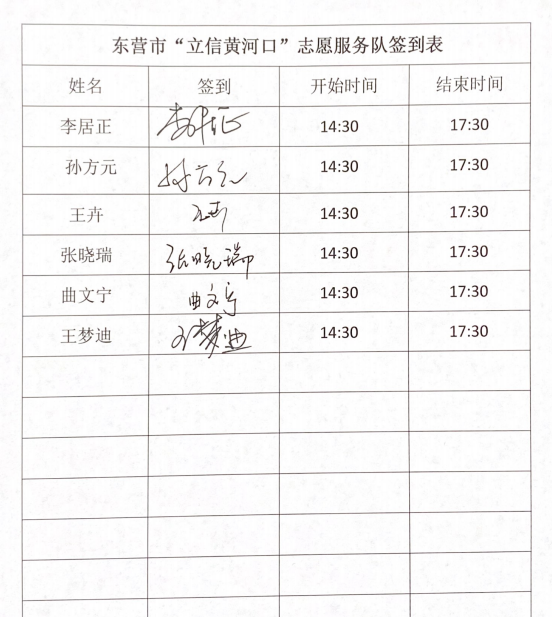 东营市“立信黄河口”志愿服务队签到表
姓名 签到 开始时间 结束时间
李居正 李居正 14:30 17:30
孙方元 孙方元 14:30 17:30
王卉 王卉 14:30 17:30
张晓瑞 张晓瑞 14:30 17:30
曲文宁 曲文宁 14:30 17:30
王梦迪 王梦迪 14:30 17:30